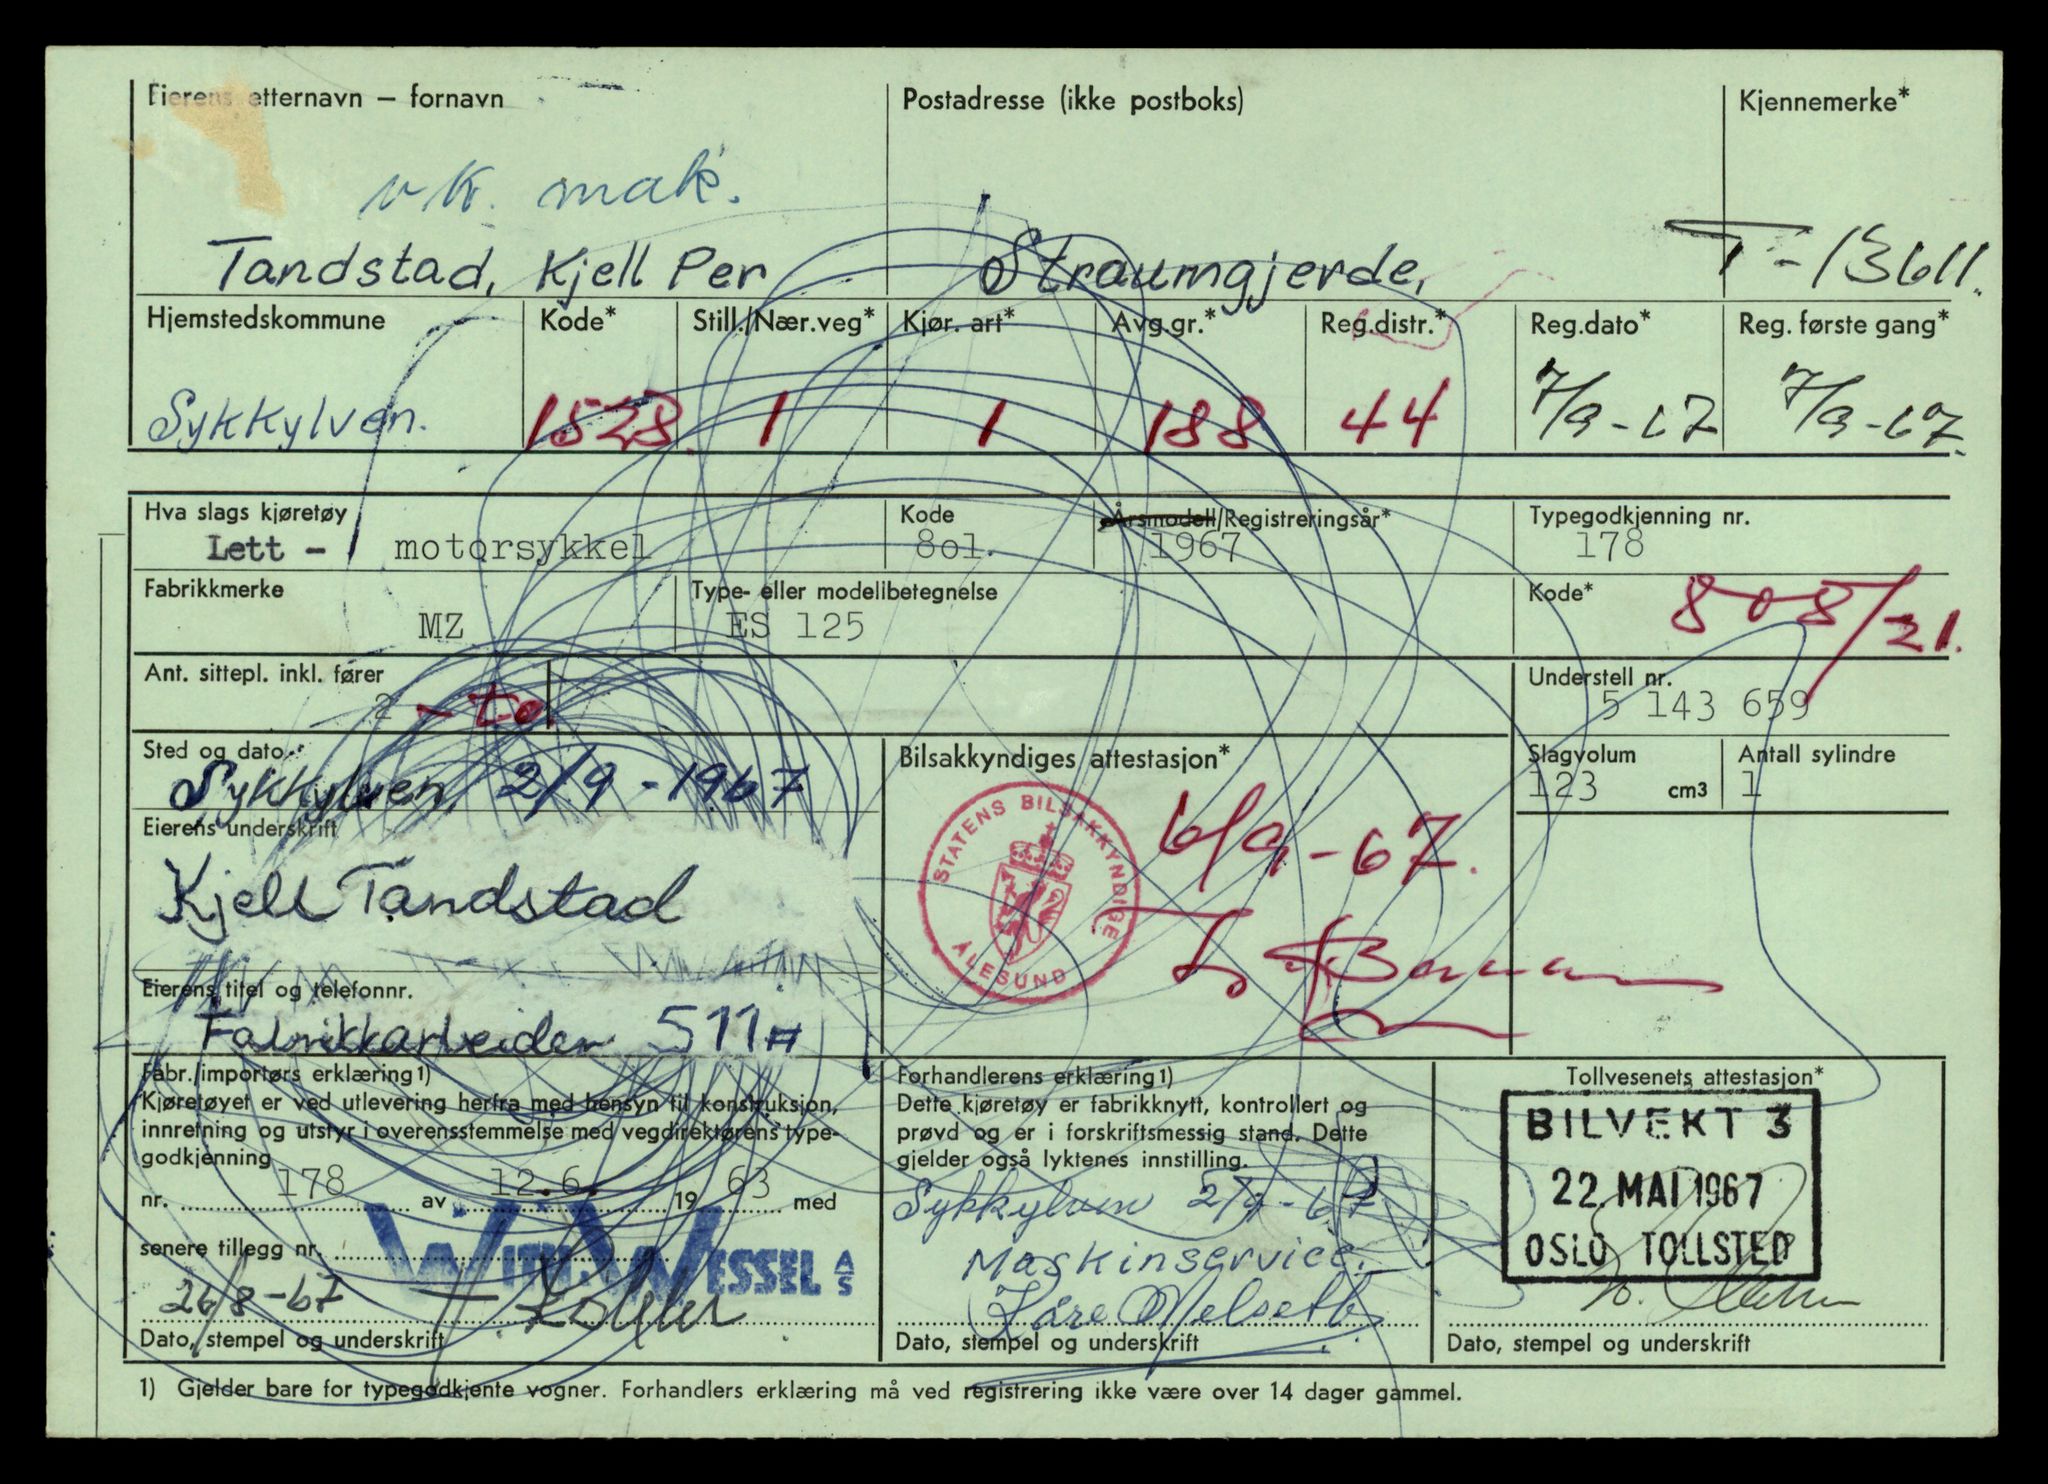 Eierens etternavn – fornavn
Postadresse (ikke postboks)
Kjennemerke*
vk. mak.
Tandstad, Kjell Per
Straumgjerde,
T-13611.
Hjemstedskommune
Kode*
Still./Nær.veg*
Kjør. art*
Avg.gr.*
Reg.distr.*
Reg.dato*
Reg. første gang*
Sykkylven.
1528
1
1
188
44
7/9-67
7/9-67.
Hva slags kjøretøy
Kode
Årsmodell/Registreringsår*
Typegodkjenning nr.
Lett - motorsykkel
8o1.
1967
178
Fabrikkmerke
Type- eller modellbetegnelse
Kode*
MZ
ES 125
808/21.
Ant. sittepl. inkl. fører
Understell nr.
2 - to
5 143 659
Sted og dato
Bilsakkyndiges attestasjon*
Slagvolum
Antall sylindre
Sykkylven, 2/9-1967
123 cm3
1
STATENS BILSAKKYNDIGE
ÅLESUND
6/9-67.
Eierens underskrift
Kjell Tandstad
Eierens titel og telefonnr.
Fabrikkarbeider 511 H
Fabr./importørs erklæring1)
Kjøretøyet er ved utlevering herfra med hensyn til konstruksjon,
innretning og utstyr i overensstemmelse med vegdirektørens type-
godkjenning
nr. 178 av 12.6. 1963 med
senere tillegg nr.
WITH WESSEL A/S
26/8-67
Dato, stempel og underskrift
Forhandlerens erklæring1)
Dette kjøretøy er fabrikknytt, kontrollert og
prøvd og er i forskriftsmessig stand. Dette
gjelder også lyktenes innstilling.
Sykkylven 2/9-67
Maskinservice.
Kåre Melseth
Dato, stempel og underskrift
Tollvesenets attestasjon*
BILVEKT 3
22. MAI 1967
OSLO TOLLSTED
Dato, stempel og underskrift
1) Gjelder bare for typegodkjente vogner. Forhandlers erklæring må ved registrering ikke være over 14 dager gammel.